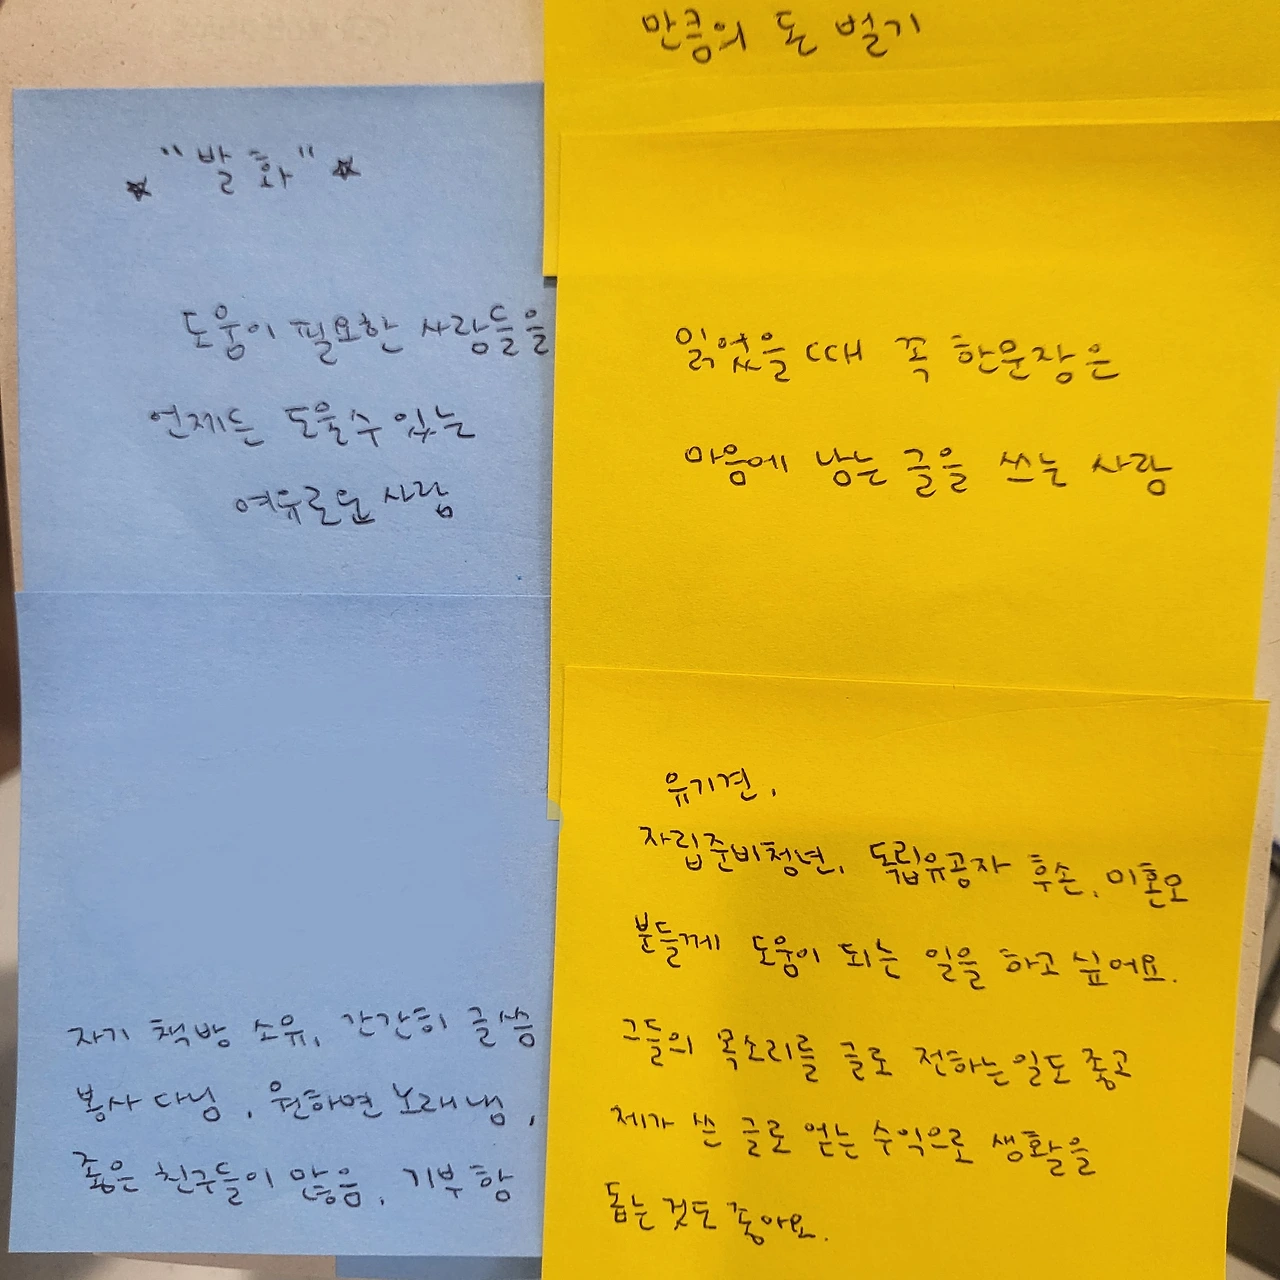 만큼의 돈 벌기
"발화"
도움이 필요한 사람들을
언제든 도울수 있는
여유로운 사람
자기 책방 소유, 간간히 글씀
봉사 다님, 원하면 노래 냄,
좋은 친구들이 많음, 기부 함
읽었을 때 꼭 한문장은
마음에 남는 글을 쓰는 사람
유기견,
자립준비청년, 독립유공자 후손, 미혼모
분들께 도움이 되는 일을 하고 싶어요.
그들의 목소리를 글로 전하는 일도 좋고
제가 쓴 글로 얻는 수익으로 생활을
돕는 것도 좋아요.